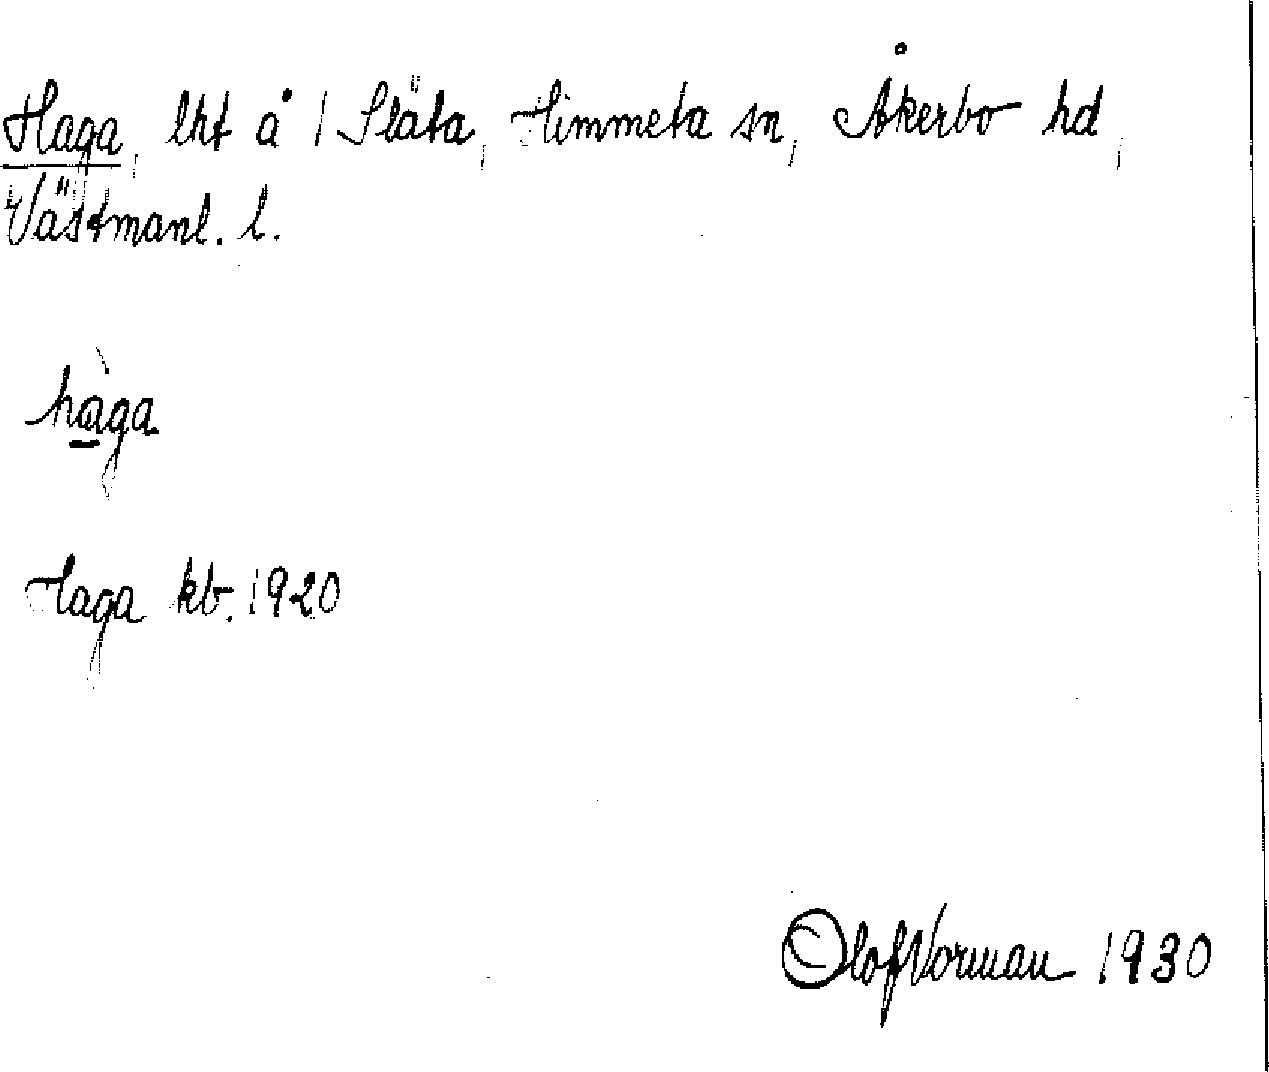 Haga, lht å 1 Släta, Himmeta sn, Åkerbo hd,
Västmanl. l.
hàga
Haga kb. 1920
Olof Vorman 1930